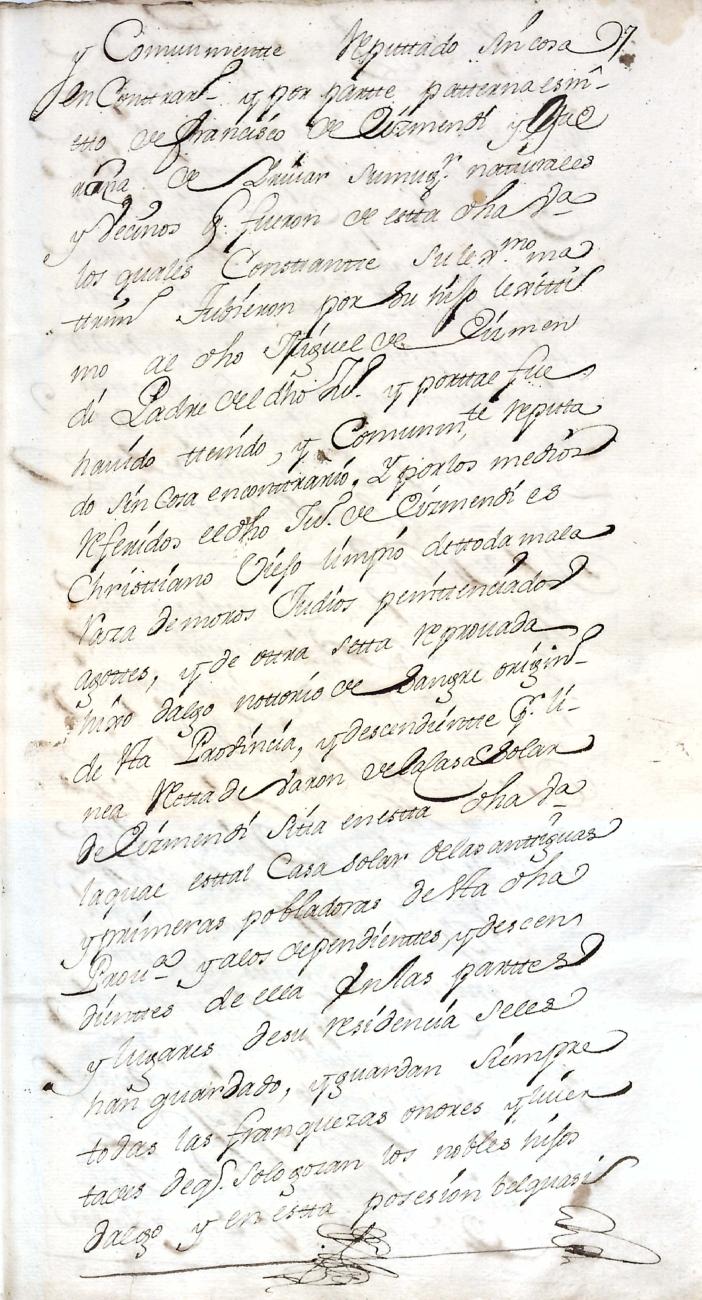 y Comunmentte Reputtado sin cosa 7
en Conttrar.º y por partte patterna es ni-
etto de francisco de Eizmendi y
de su mug.r natturales
y Vecinos q.e fueron de estta dha Va
los quales Constantte su lex.mo ma
ttrim.º Tubieron por su hijo lexitti
mo al dho Miguel de Eizmen
di Padre del dho Ju.º y por tal fue
hauido ttenido, y Comunm.te Reputta
do sin Cosa en conttrario. Y por los medios
Referidos el dho Ju.º de Eizmendi es
Christtiano Viejo limpio de ttoda mala
Raza de moros Judios penittenciados
agottes, y de ottra setta reprouada
hixo dalgo nottorio de Sangre origin.º
de stta Prouincia, y descendientte p.r li-
nea Retta de Varon de la Casa Solar
de Eizmendi sitta en estta dha Va
la qual es ttal Casa solar de las antiguas
y primeras pobladoras de stta dha
Prou.a y a los dependienttes, y descen
dienttes de ella en las parttes
y lugares de su residencia se les
han guardado, y guardan siempre
todas las franquezas onores y liuer
tades de q.e solo gozan los nobles hijos
dalgo y en estta posesion bel quasi